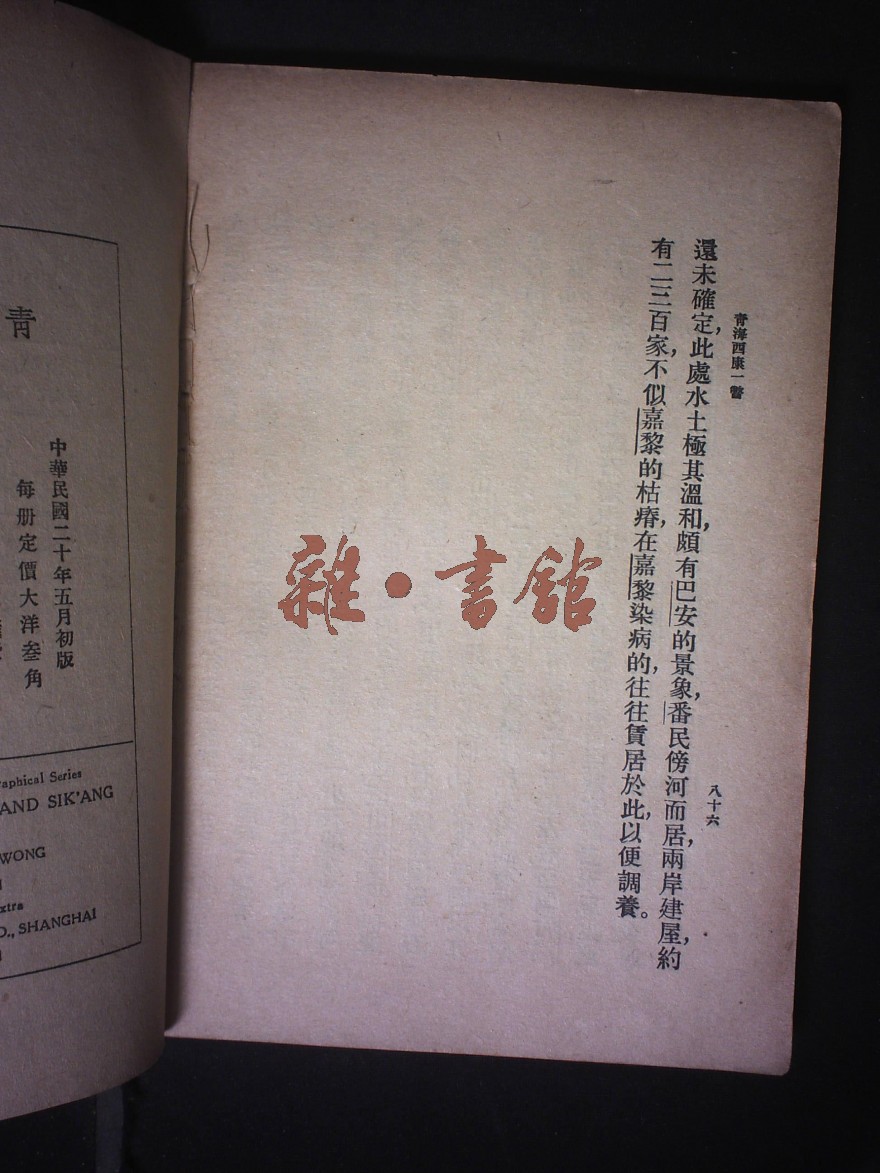 青海西康一瞥
八十六
還未確定,此處水土極其溫和,頗有巴安的景象,番民傍河而居,兩岸建屋,約
有二三百家,不似嘉黎的枯瘠,在嘉黎染病的,往往賃居於此,以便調養。
雜·書館
青
中華民國二十年五月初版
每册定價大洋叁角
aphical Series
AND SIK'ANG
WONG
xtra
O., SHANGHAI